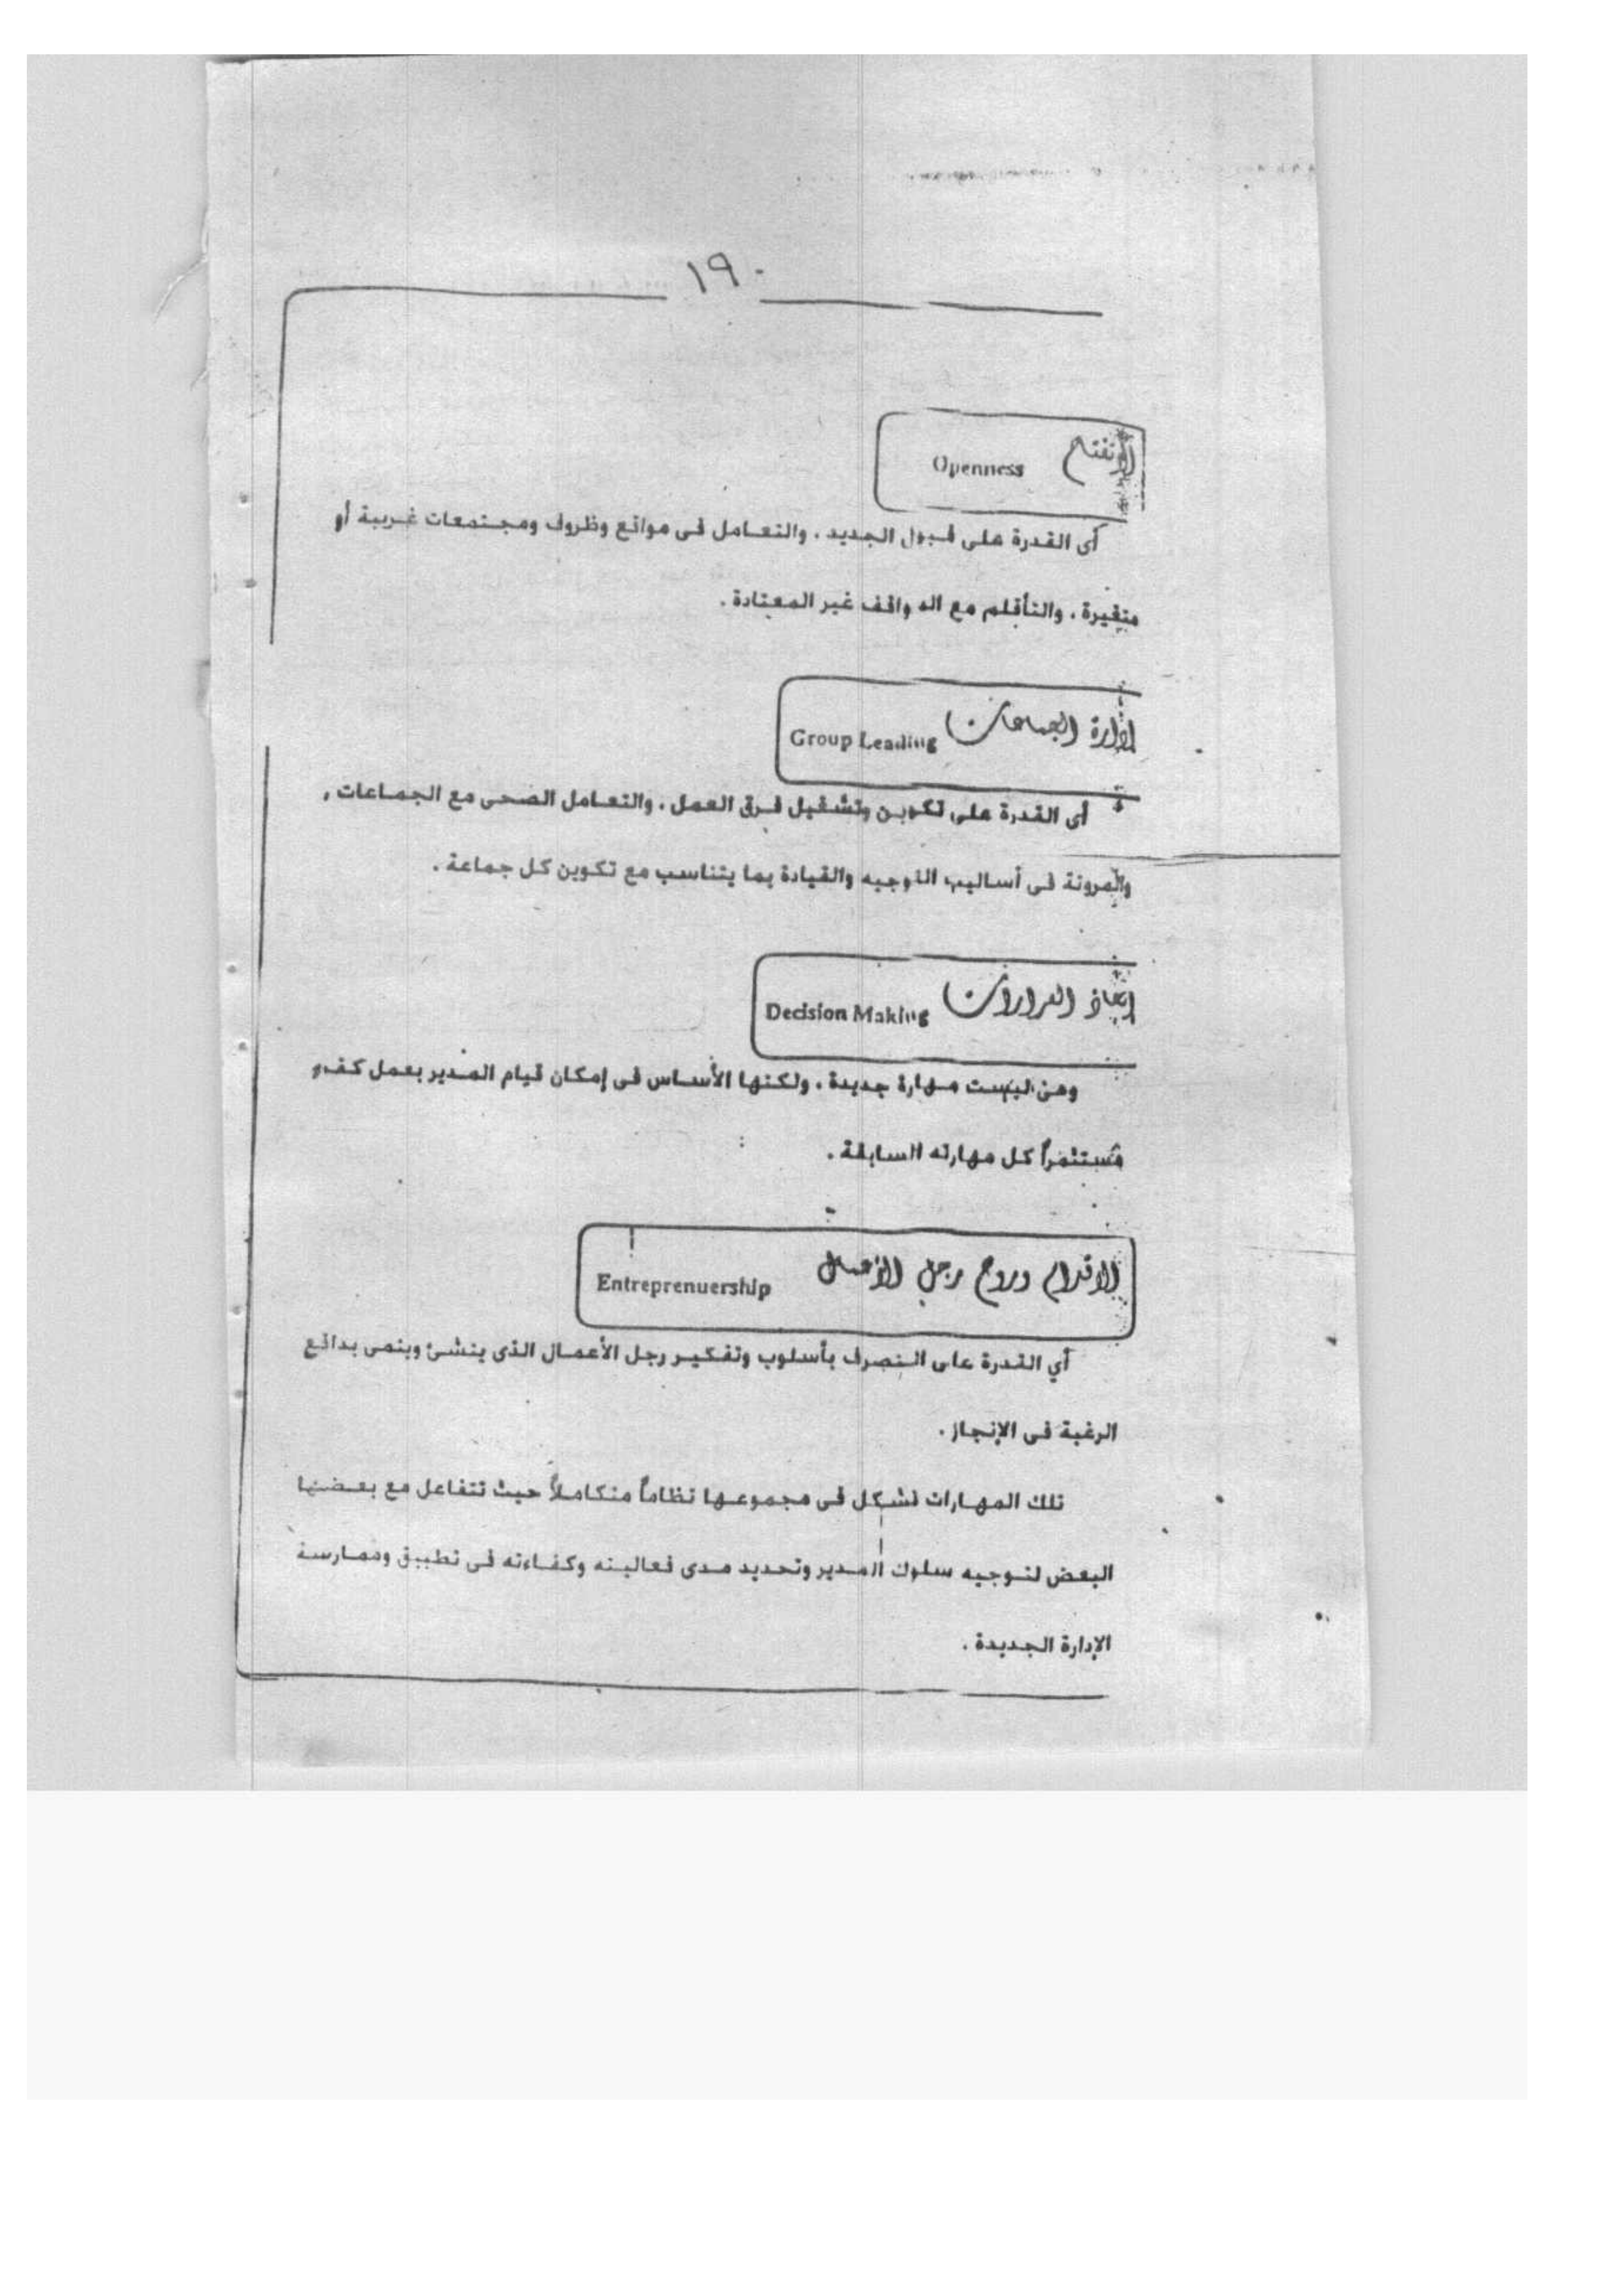 ١٩٠
التفتح Openness
أى القدرة على قبول الجديد ، والتعامل فى مواقع وظروف ومجتمعات غريبة أو
متغيرة ، والتأقلم مع المواقف غير المعتادة .
إدارة الجماعات Group Leading
أى القدرة على تكوين وتشغيل فرق العمل ، والتعامل الصحى مع الجماعات ,
والمرونة فى أساليب التوجيه والقيادة بما يتناسب مع تكوين كل جماعة .
إتخاذ القرارات Decision Making
وهى ليست مهارة جديدة ، ولكنها الأساس فى إمكان قيام المدير بعمل كفء
مستثمراً كل مهارته السابقة .
الاقدام وروح رجل الأعمال Entreprenuership
أي القدرة على التصرف بأسلوب وتفكير رجل الأعمال الذى ينشئ وينمى بدافع
الرغبة فى الإنجاز .
تلك المهارات تشكل فى مجموعها نظاماً متكاملاً حيث تتفاعل مع بعضها
البعض لتوجيه سلوك المدير وتحديد مدى فعاليته وكفاءته فى تطبيق وممارسة
الإدارة الجديدة .